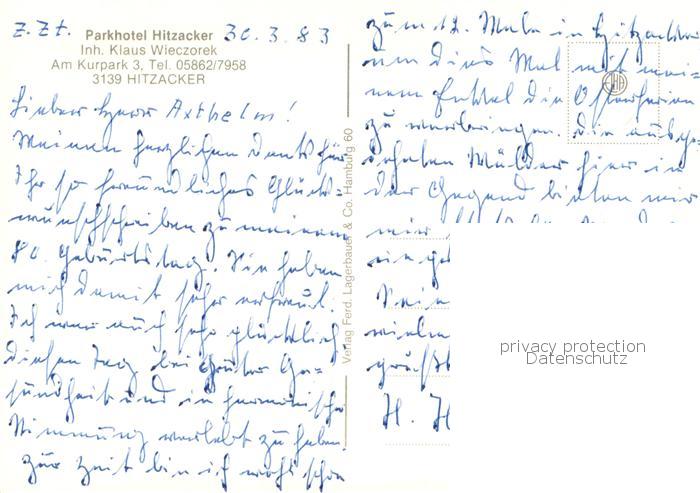 z.Zt.
Parkhotel Hitzacker 30.3.83
Inh. Klaus Wieczorek
Am Kurpark 3, Tel. 05862/7958
3139 HITZACKER
Lieber Herr Axthelm!
Meinen herzlichen Dank für
Ihr so freundliches Glück-
wunschschreiben zu meinem
80. Geburtstag. Sie haben
mich damit sehr erfreut.
Ich war auch sehr glücklich
diesen Tag bei guter Ge-
sundheit und in harmonischer
Stimmung verlebt zu haben.
Zur Zeit bin ich wohl schon
Verlag Ferd. Lagerbauer & Co. Hamburg 60
zum 12. Male in Hitzacker
um dies Mal mit mei=
nem Enkel die Osterferien
zu verbringen. Die ausge-
dehnten Wälder hier in
der Gegend bieten mir
mir
ein
vielen
grüßt
H. H
privacy protection
Datenschutz